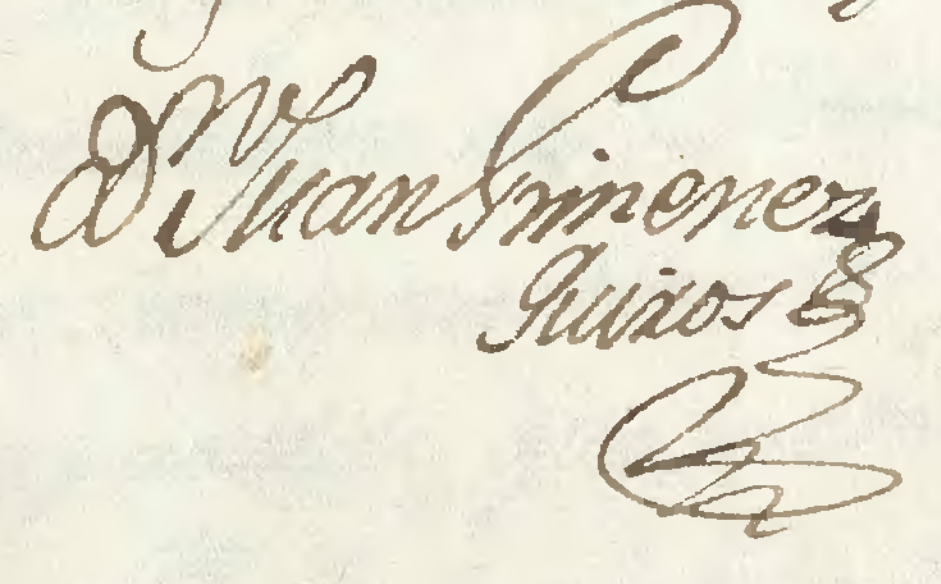 Dn Juan Ximenez
Quixos